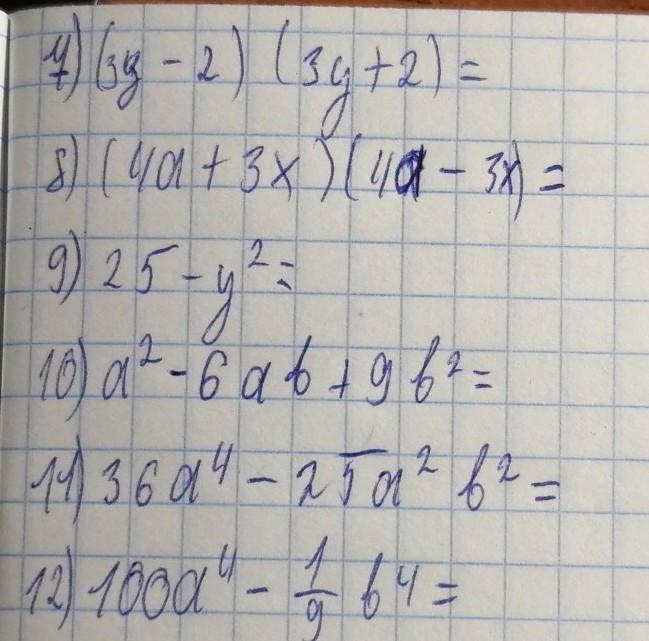 7) (3y - 2) (3y + 2) =
8) (4a + 3x) (4a - 3x) =
9) 25 - y² =
10) a² - 6ab + 9b² =
11) 36a⁴ - 25a² b² =
12) 100a⁴ - 1/9 b⁴ =